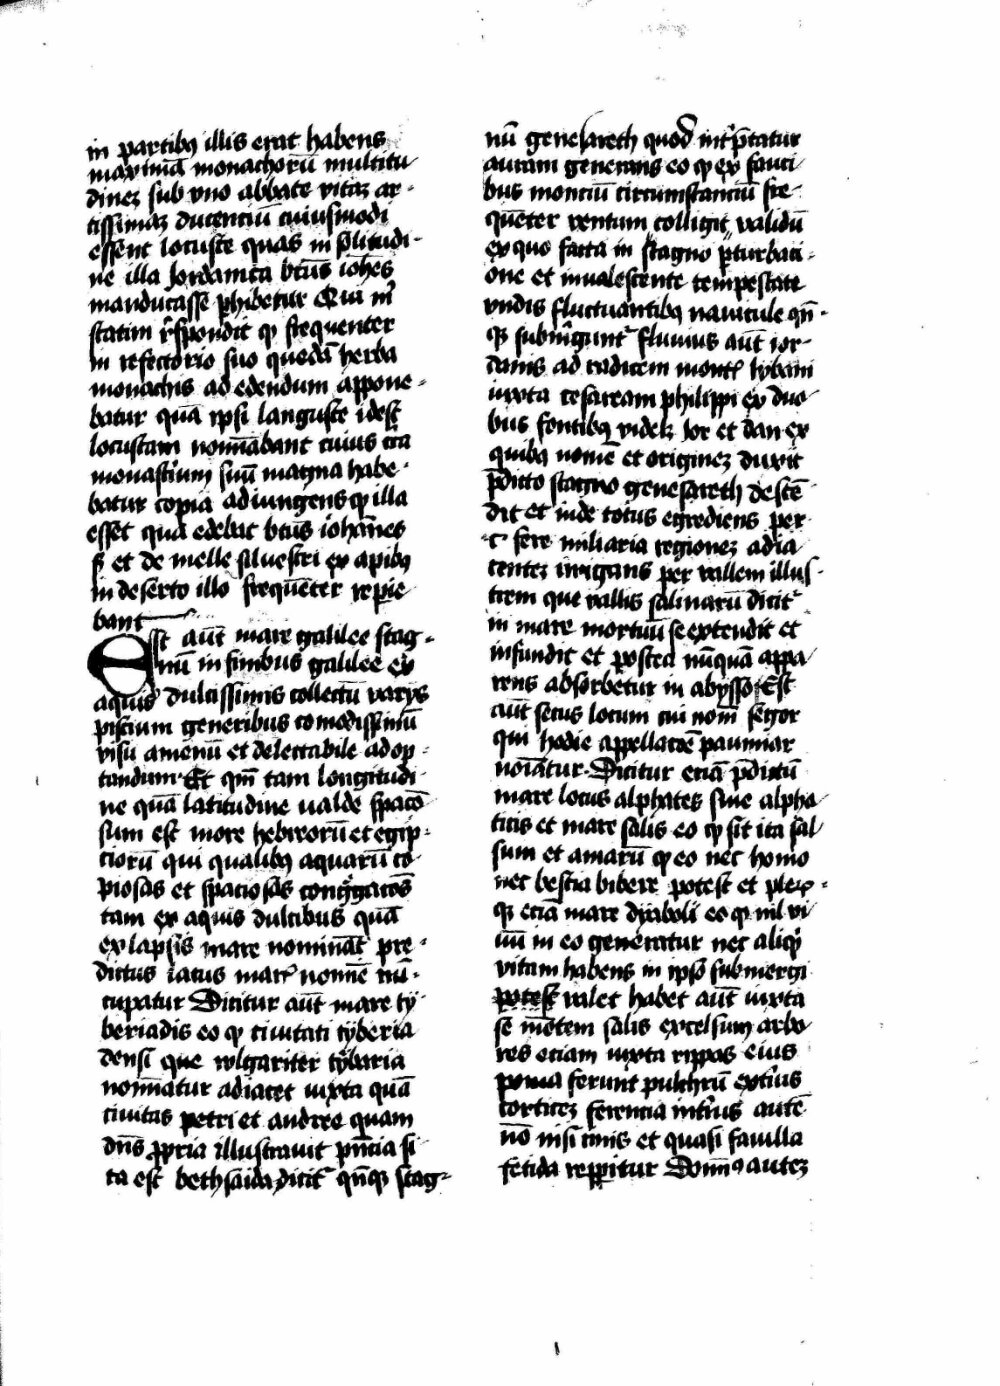 in partibꝫ illis erat habens
maximā monachorū multitu
dineꝫ sub vno abbate vitaꝫ ar-
tissimaꝫ ducenciū cuiusmodi
essent locuste quas in solitudi-
ne illa Jordanica btūs ioh̄es
manducasse phibetur Qui m
statim rn̄spondit qꝫ frequenter
in refectorio suo quedā herba
monachis ad edendum appone-
batur quā ipsi languste idest
locustam nomīabant cuius cīa
monasterium suū magna habe-
batur copia adiungens qꝫ illa
esset quā edebat btūs ioh̄anes
s̄ et de melle siluestri ex apibꝫ
in deserto illo frequēter repie
bant
Est aūt mare galilee stag-
nū in finibus galilee ex
aquis dulcissimis collectū varijs
piscium generibus comodissimū
visu amenū et delectabile ad op-
tandum Et qm̄ tam longitudi-
ne quā latitudine ualde spacō
sum est more hebreorū et egip-
ciorū qui qualibꝫ aquarū co-
piosas et spaciosas congregacōs
tam ex aquis dulcibus quā
ex lapsis mare nominat̄ pre-
dictus lacus mar̄ nomē nū-
cupatur Dicitur aūt mare ty-
beriadis eo qꝫ ciuitati tyberia
densi que wlgariter tybaria
nomīatur adiacet iuxta quā
ciuitas petri et andree quam
dn̄s ꝓpria illustrauit pn̄cia si-
ta est bethsaida dicit̄ qn̄qꝫ stag-
nū genesareth quod int̄p̄tatur
auram generans eo qꝫ ex fauci
bus monciū circumstanciū fre-
quēter ventum colligit validū
ex quo facta in stagno p̄turbaci-
one et inualescente tempestate
vndis fluctuantibꝫ nauicule qn̄-
qꝫ submergunt̄ fluuius aūt ior-
danis ad radicem mont̄ lybani
iuxta cesaream philippi ex duo
bus fontibꝫ videlꝫ Jor et dan ex
quibꝫ nomē et origineꝫ duxit
p̄dicto stagno genesareth descē-
dit et inde totus egrediens per
c fere miliaria regioneꝫ adia
centeꝫ irrigans per vallem illus-
trem que vallis salinarū dicit̄
in mare mortuū se extendit et
infundit et postea nūquā appa
rens absorbetur in abysso Est
aūt secus locum cui nom̄ segor
qui hodie appellacōe paumiar
noīatur Dicitur eciā p̄dictū
mare locus alphates siue alpha
titis et mare salis eo qꝫ sit ita sal
sum et amarū qꝫ eo nec homo
nec bestia bibere potest et pler-
qꝫ eciā mare dyaboli eo qꝫ nil vi
uū in eo generatur nec aliqꝫ
vitam habens in ipso submergi
potest valet habet aūt iuxta
se mōtem salis excelsum arbo
res eciam iuxta rippas eius
poma ferunt pulchrū exterius
corticeꝫ ferencia int̄ius autē
nō nisi cinis et quasi fauilla
fetida repitur Domīꝰ auteꝫ